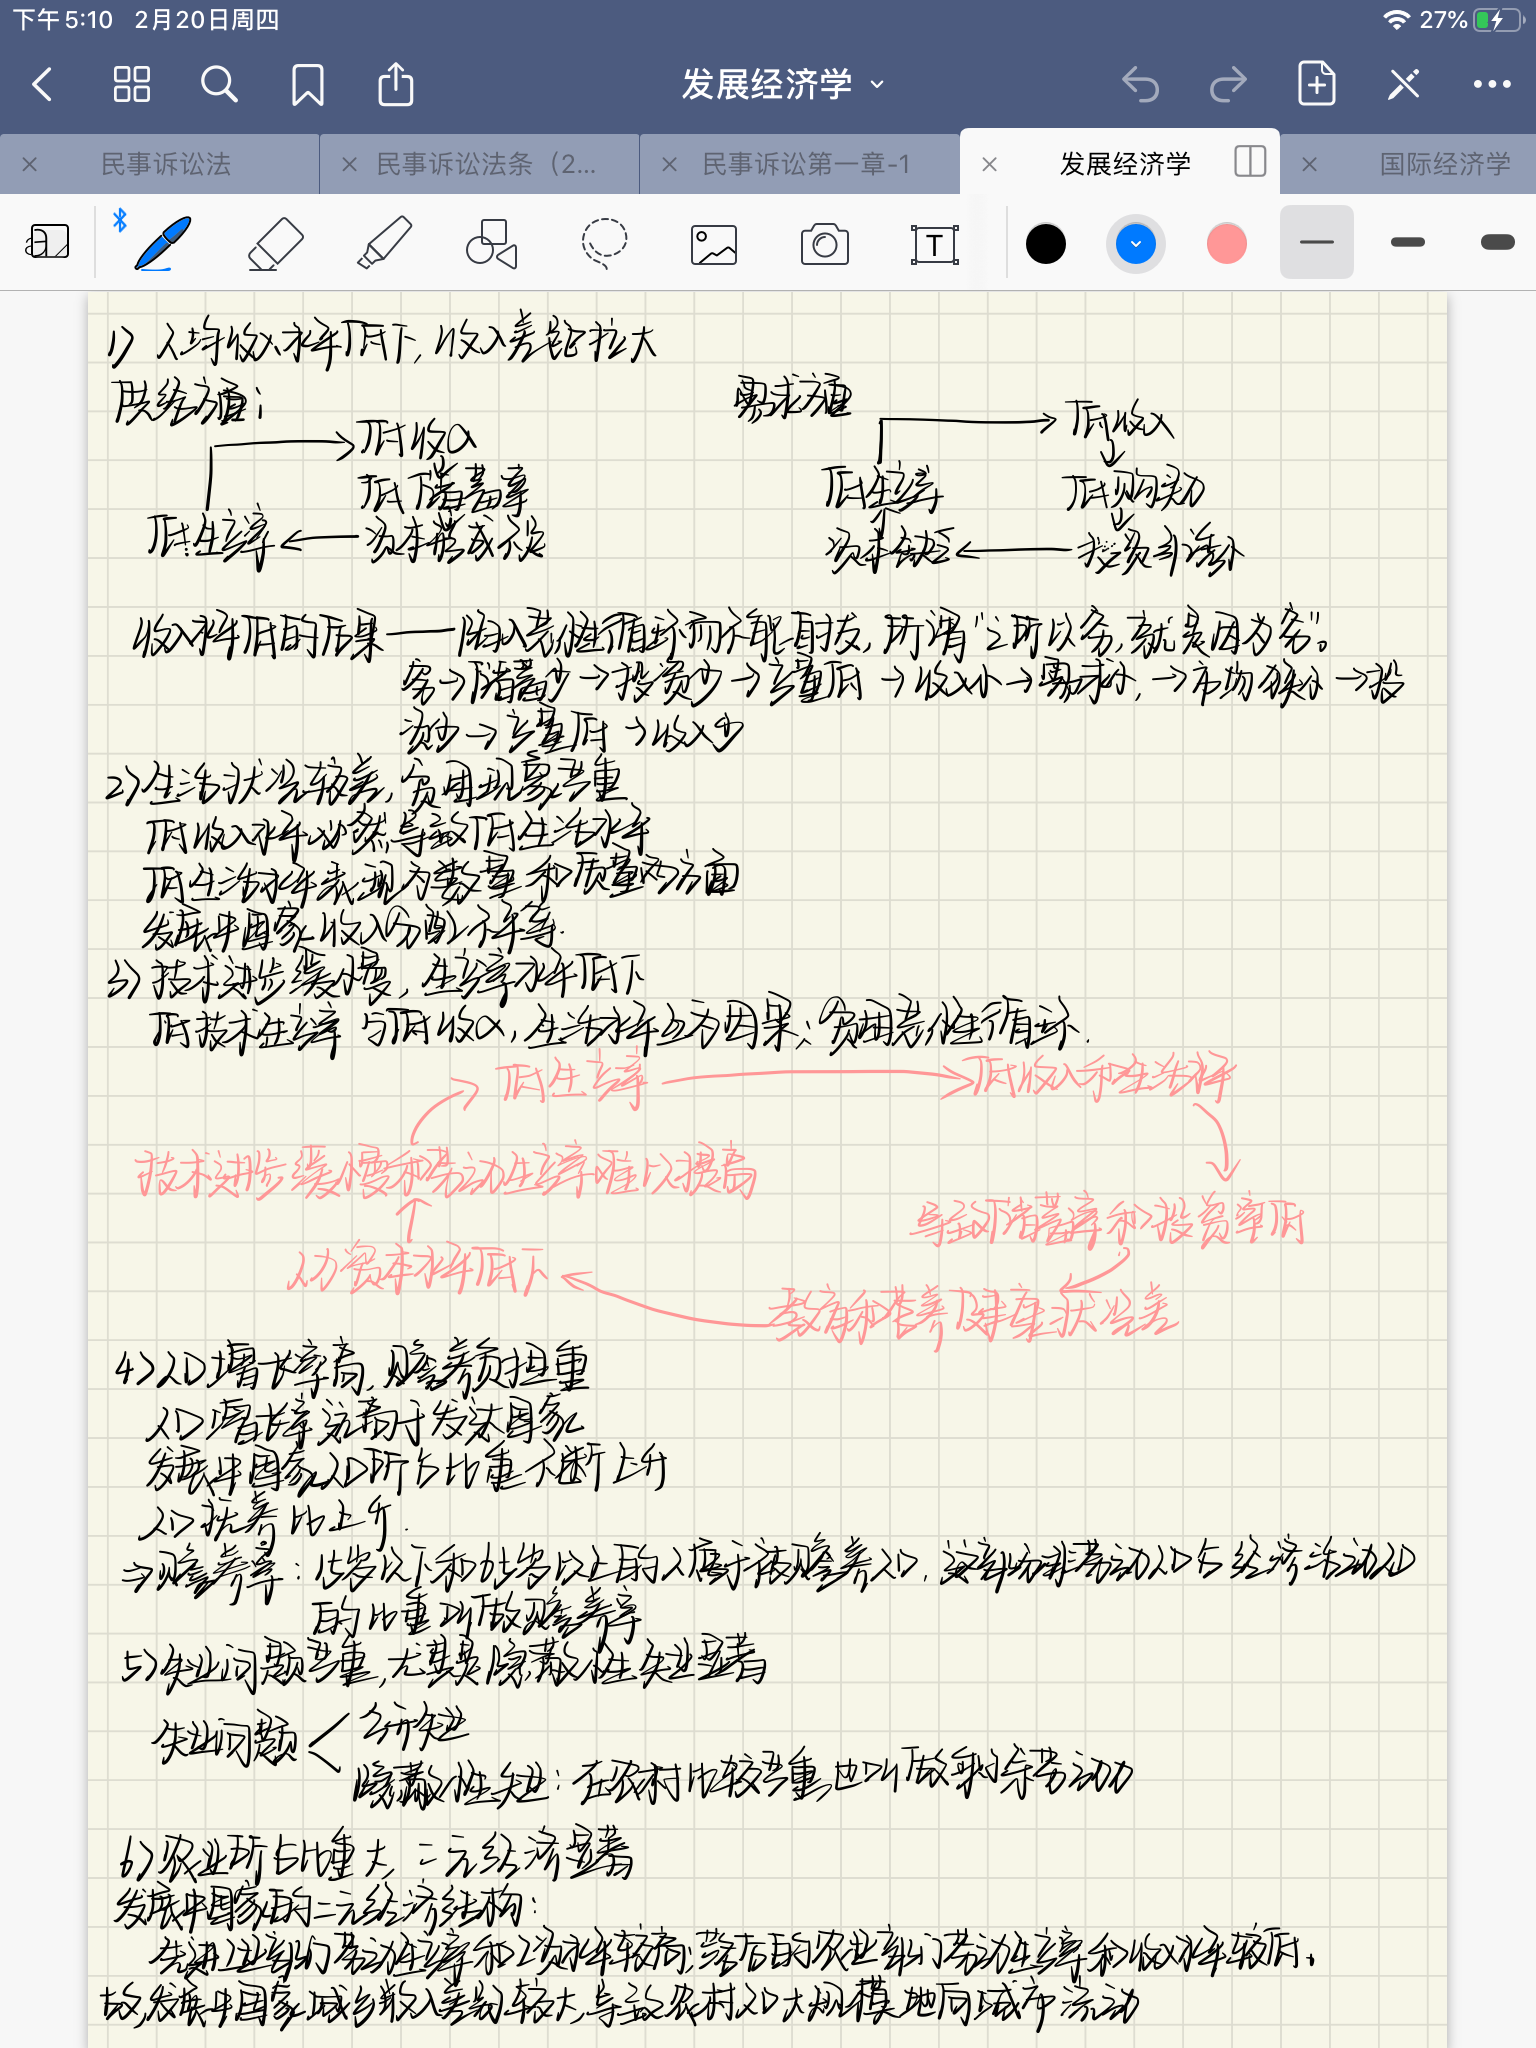 下午5:10 2月20日周四
27%
发展经济学
民事诉讼法
民事诉讼法条（2...
民事诉讼第一章-1
发展经济学
国际经济学
1) 人均收入水平低下, 收入差距拉大
供给方面:
需求方面
低收入
低收入
低储蓄率
低生产率
低购买力
低生产率
资本形成不足
资本缺乏
投资引诱小
收入水平低的后果——陷入恶性循环而不能自拔, 所谓“之所以穷, 就是因为穷”。
穷→储蓄少→投资少→产量低→收入小→需求小, →市场狭小→投
资少→产量低→收入少
2) 生活状况较差, 贫困现象严重
低收入水平必然导致低生活水平
低生活水平表现为数量和质量两方面
发展中国家收入分配不平等.
3) 技术进步缓慢, 生产率水平低下
低技术生产率与低收入, 生活水平互为因果; 贫困恶性循环.
低生产率
低收入和生活水平
技术进步缓慢和劳动生产率难以提高
导致储蓄率和投资率低
人力资本水平低下
教育和营养及健康状况差
4) 人口增长率高, 赡养负担重
人口增长率远高于发达国家
发展中国家人口所占比重不断上升
人口抚养比上升.
⇒赡养率: 15岁以下和65岁以上的人属于被赡养人口, 这部分非劳动人口占经济活动人口
的比重叫做赡养率
5) 失业问题严重, 尤其是隐蔽性失业显著
失业问题
公开失业
隐蔽性失业: 在农村比较严重, 也叫做剩余劳动力
6) 农业所占比重大, 二元经济显著
发展中国家的二元经济结构:
先进工业部门劳动生产率和工资水平较高; 落后的农业部门劳动生产率和收入水平较低。
故, 发展中国家城乡收入差别较大, 导致农村人口大规模地向城市流动